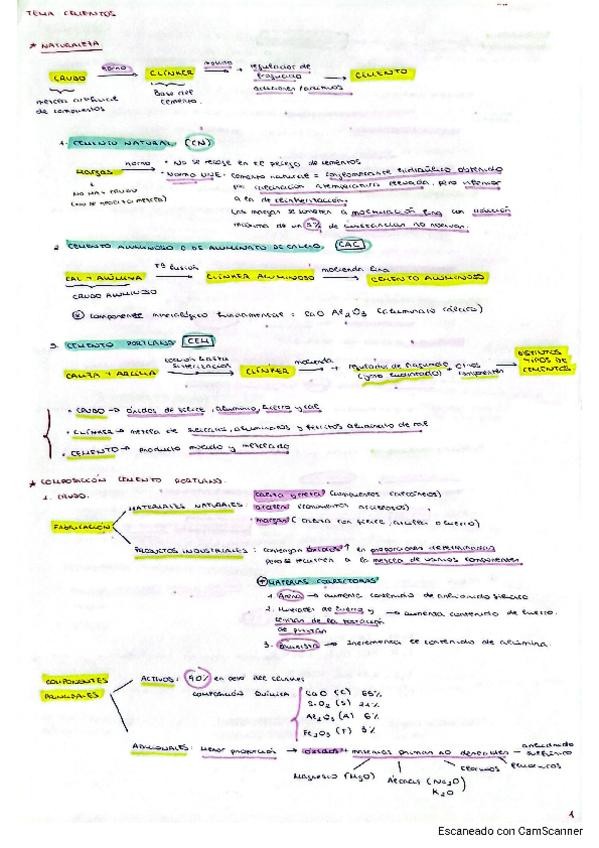 TEMA CEMENTOS
* NATURALEZA
CRUDO horno CLÍNKER molino + regulador de fraguado CEMENTO
mezcla artificial de compuestos
Base del cemento.
adiciones/aditivos
1. CEMENTO NATURAL (CN)
Margas horno • No se recoge en el pliego de cementos
• Norma UNE: cemento natural = conglomerante hidráulico obtenido
por calcinación a temperatura elevada, pero inferior
a la de sinterización.
Las margas se someten a molturación fina con
máximo de un 5% de sustancias no nocivas.
2. CEMENTO ALUMINOSO O DE ALUMINATO DE CALCIO (CAC)
CAL + ALÚMINA Tª fusión CLÍNKER ALUMINOSO molienda fina CEMENTO ALUMINOSO
CRUDO ALUMINOSO
componente mineralógico fundamental: CaO Al2O3 (aluminato cálcico)
3. CEMENTO PORTLAND (CEM)
CALIZA + ARCILLA cocción hasta sinterización CLÍNKER molienda + regulador de fraguado + otros componentes DISTINTOS TIPOS DE CEMENTOS
• CRUDO → óxidos de sílice, aluminio, hierro y cal
• CLÍNKER → mezcla de silicatos, aluminatos y
• CEMENTO → producto molido y mezclado
* COMPOSICIÓN CEMENTO PORTLAND.
1. CRUDO.
FABRICACIÓN
MATERIALES NATURALES: caliza y creta (componentes calcáreos)
arcillas (componentes arcillosos)
margas (caliza con sílice, arcilla o hierro)
PRODUCTOS INDUSTRIALES: contengan óxidos ↑ en proporciones determinadas
pero se recurren a la mezcla de varios componentes.
+ MATERIAS CORRECTORAS
1. Arena → aumenta contenido de anhídrido silícico
2. Minerales de hierro y → aumenta contenido de hierro.
cenizas de la tostación
de piritas
3. Bauxita → incrementa el contenido de alúmina.
COMPONENTES PRINCIPALES
ACTIVOS: 90% en peso del clínker
COMPOSICIÓN QUÍMICA:
CaO (C) 65%
SiO2 (S)
Al2O3 (A) 6%
Fe2O3 (F) 3%
ADICIONALES: Menor proporción → óxidos materias primas no deseables
anhídrido sulfúrico
Magnesio (MgO) Álcalis (Na2O)
K2O
cloruros
1
Escaneado con CamScanner